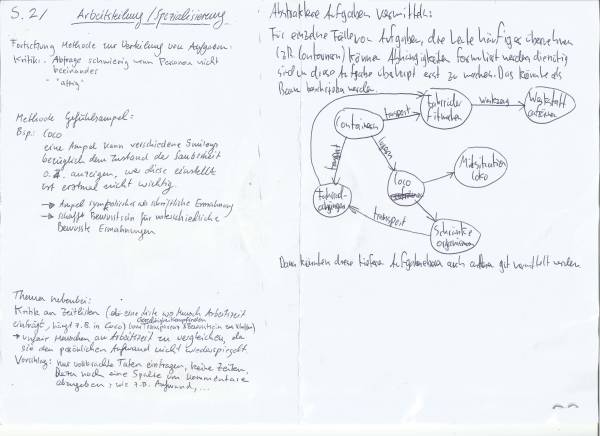 S. 2/
Arbeitsteilung / Spezialisierung
Fortsetzung Methode zur Verteilung von Aufgaben:
Kritik: Abfrage schwierig wenn Personen nicht
beieinander
" "
Methode Gefühlsampel:
Bsp.: Loco
eine Ampel kann verschiedene Smileys
bezüglich dem Zustand der Sauberkeit
o.ä. anzeigen, wer diese einstellt
ist erstmal nicht wichtig.
→ Ampel symbolisches wo schriftliche Ermahnung
→ schafft Bewusstsein für unterschiedliche
Bewusste Ermahnungen
Thema nebenbei:
Kritik an Zeitlisten (also eine Liste wo Mensch Arbeitszeit
einträgt, hängt z.B. in Loco) (um Transparenz & Bewusstsein zu schaffen)
→ unfair Menschen an Arbeitszeit zu vergleichen, da
sie den persönlichen Aufwand nicht wiederspiegelt
Vorschlag: nur vollbrachte Taten eintragen, keine Zeiten,
noch eine Spalte um Kommentare
abzugeben, wie z.B. Aufwand, ...
Abstraktere Aufgaben vermitteln:
Für einzelne Fälle von Aufgaben, die Leute häufiger übernehmen
(zB Containern) können Abhängigkeiten formuliert werden, die nötig
sind um diese Aufgabe überhaupt erst zu machen. Das könnte als
Baum beschrieben werden
Containern
transport
Fahrräder
fitmachen
werkzeug
Werkstatt
transport
lagern
Loco
Mülsituation
Loco
Fahrrad-
transport
Schränke
organisieren
Dann könnten diese tieferen Aufgabenebenen auch anderen gut vermittelt werden